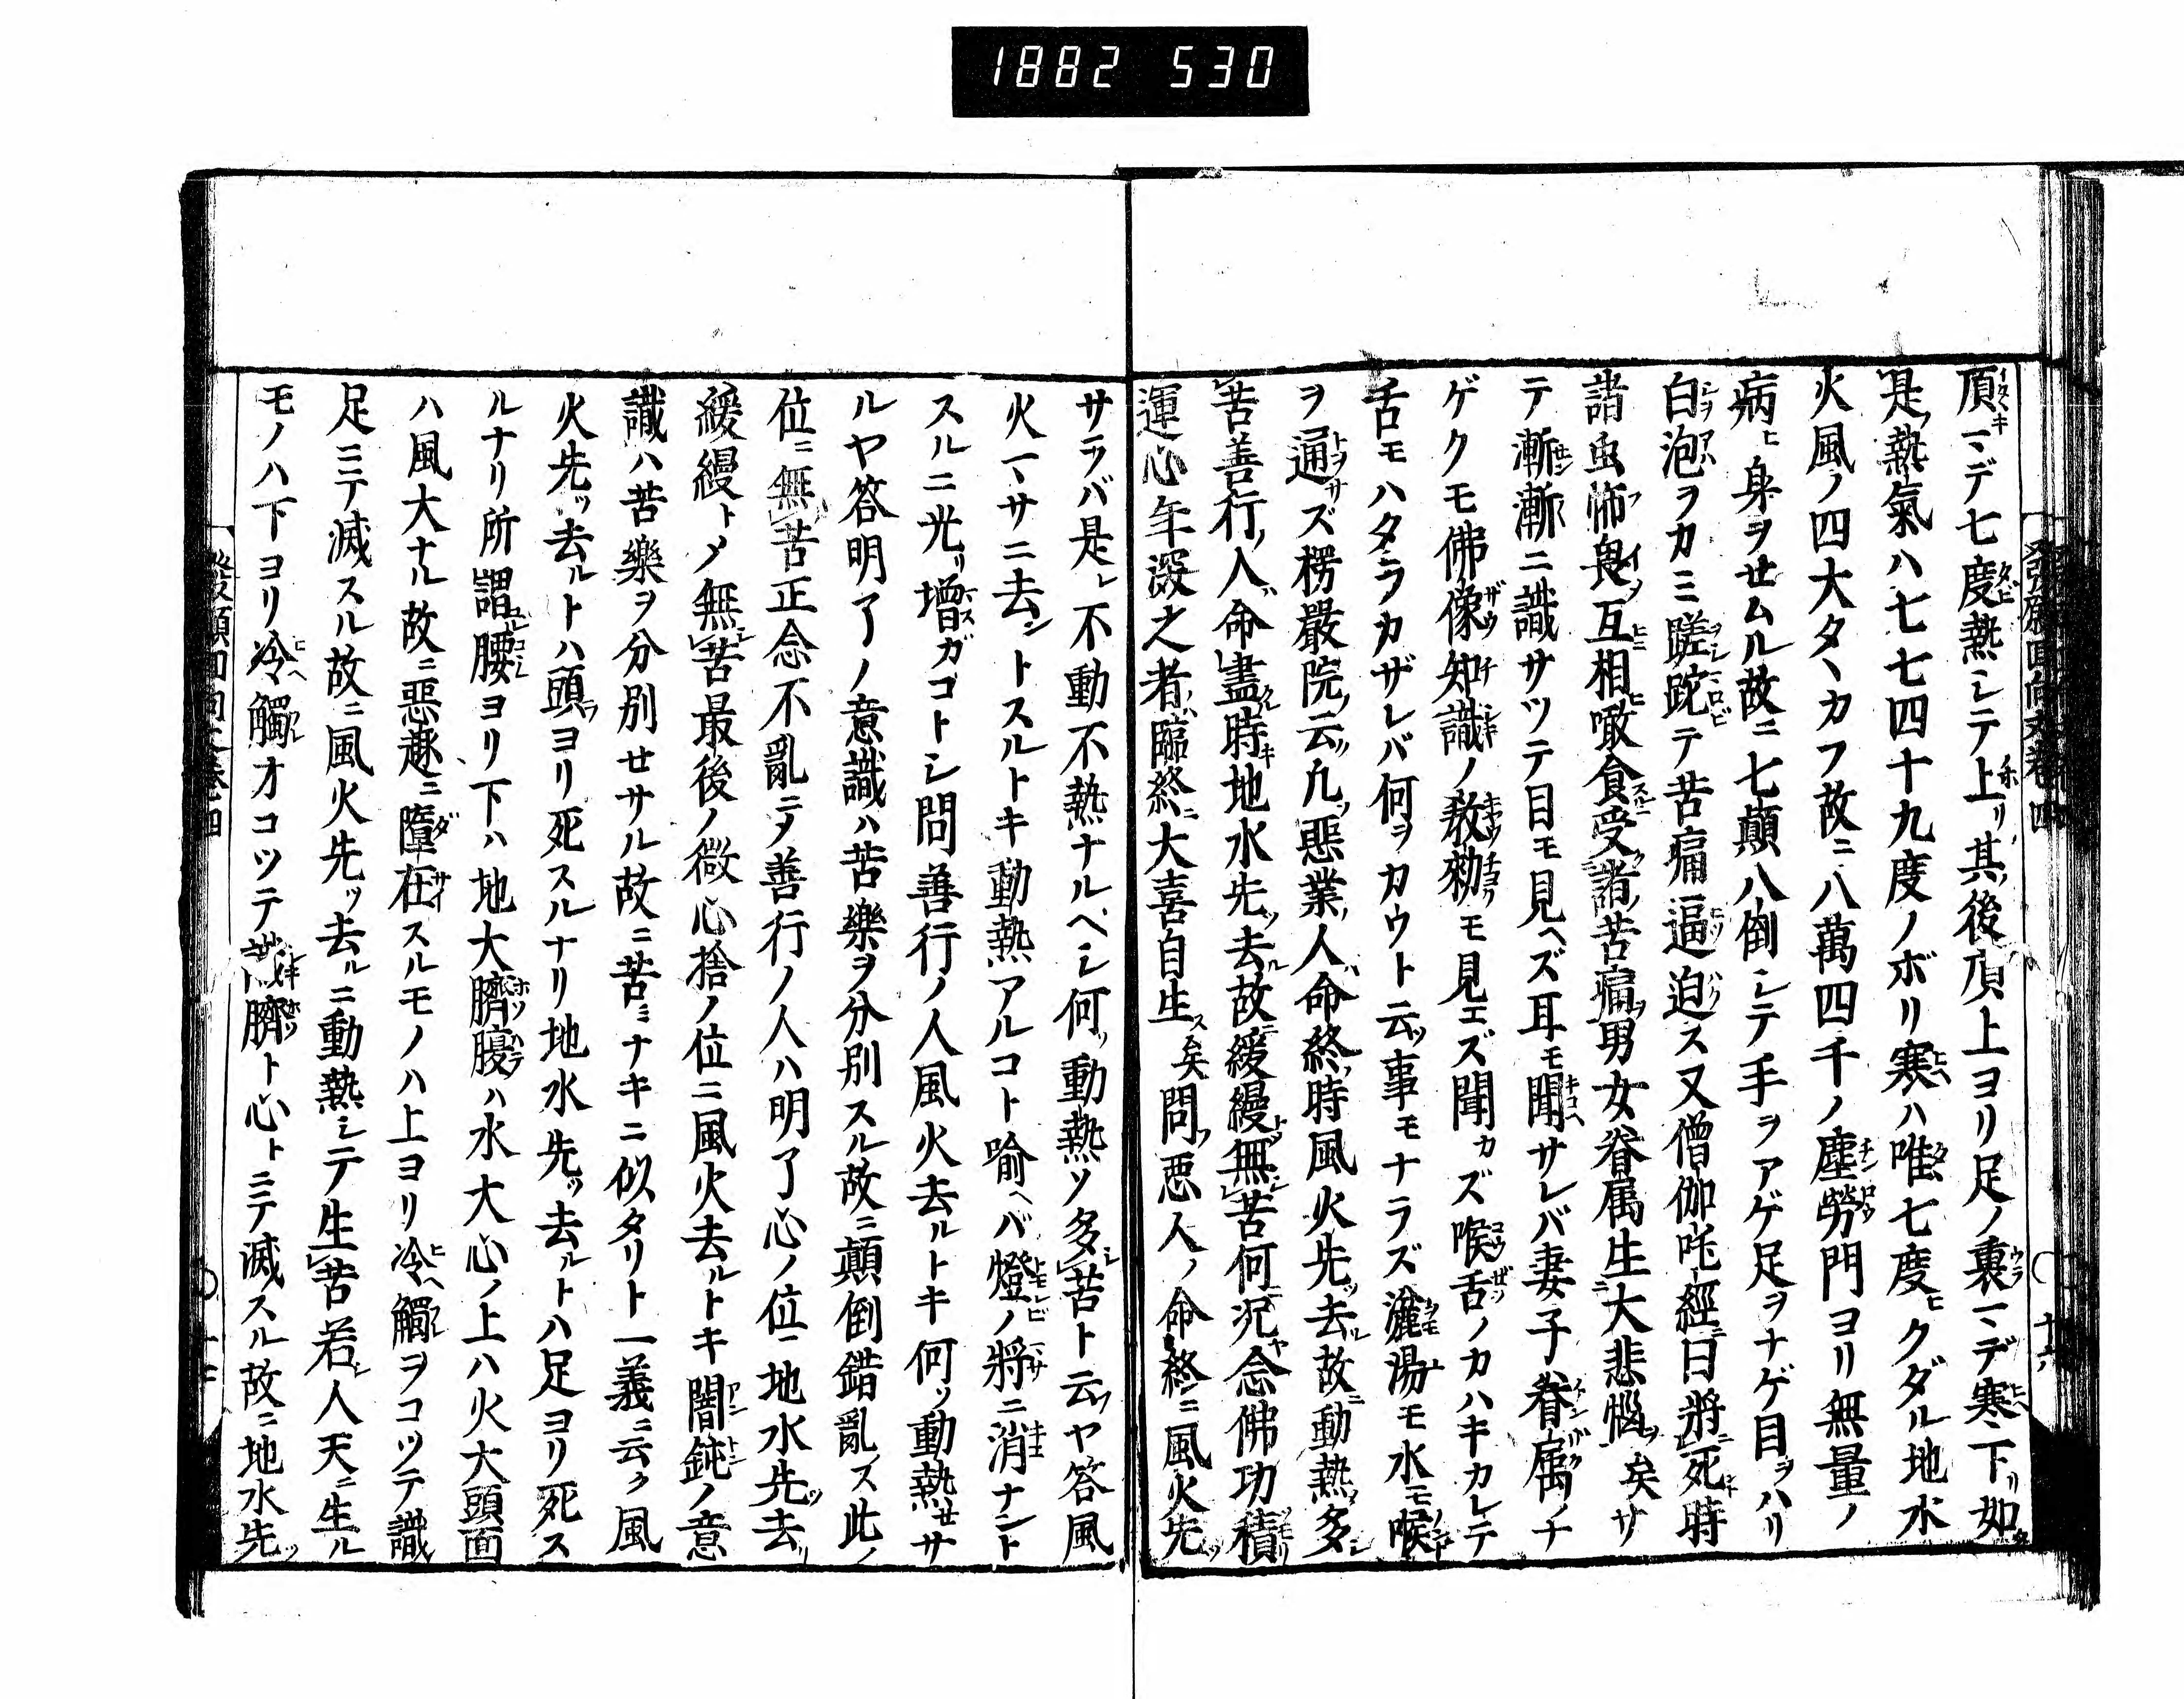 1882 530
發願回向文卷四 十六
頂マデ七度熱シテ上リ其後頂上ヨリ足ノ裏マデ寒下リ如
是熱氣ハ七七四十九度ノボリ寒ハ唯七度ヒクダル地水
火風ノ四大タヽカフ故ニ八萬四千ノ塵勞門ヨリ無量ノ
病ヒ身ヲセムル故ニ七顛八倒シテ手ヲアゲ足ヲナゲ目ヲハリ
白泡ヲカミ蹉跎テ苦痛逼迫ス又僧伽吒經ニ曰將死時
諸虫怖畏互相噉食受諸苦痛男女眷属生大悲惱矣サ
テ漸漸ニ識サツテ目モ見ヘズ耳モ聞サレバ妻子眷属ノナ
ゲクモ佛像知識ノ教勅モ見エズ聞カズ喉舌ノカハキカレテ
舌モハタラカザレバ何ヲカウト云事モナラズ漉湯モ水モ喉
ヲ通サズ楞嚴院ノ云ク凡惡業ノ人命終時風火先ツ去ル故ニ動熱シテ多
苦善行ノ人命盡時地水先ツ去故ニ緩縵トシテ無苦何ニ況ヤ念佛功積
運心年深之者臨終ニ大喜自生ス矣問フ惡人ノ命終ニ風火先ツ
サラバ是レ不動不熱ナルベシ何ソ動熱ソ多苦ト云ヤ答風
火マサニ去ントスルトキ動熱アルコト喩ヘバ燈ノ將ニ消ナント
スルニ光リ増ガゴトシ問善行ノ人風火去ルトキ何ソ動熱セサ
ルヤ答明了ノ意識ハ苦樂ヲ分別スル故ニ顛倒錯亂ス此ノ
位ニ無苦正念不亂ニテ善行ノ人ハ明了心ノ位ニ地水先ツ去リ
緩縵トメ無苦最後ノ微心捨ノ位ニ風火去ルトキ闇鈍ノ意
識ハ苦樂ヲ分別セサル故ニ苦ミナキニ似タリト一義ニ云ク風
火先ツ去ルトハ頭ヨリ死スルナリ地水先ツ去ルトハ足ヨリ死ス
ルナリ所謂腰ヨリ下ハ地大臍腹ハ水大心ノ上ハ火大頭面
ハ風大ナル故ニ惡趣ニ墮在スルモノハ上ヨリ冷觸ヲコツテ識
足ニテ滅スル故ニ風火先ツ去ルニ動熱シテ生苦若シ人天ニ生ル
モノハ下ヨリ冷觸オコツテ識臍ト心トニテ滅スル故ニ地水先ツ
發願回向文卷四